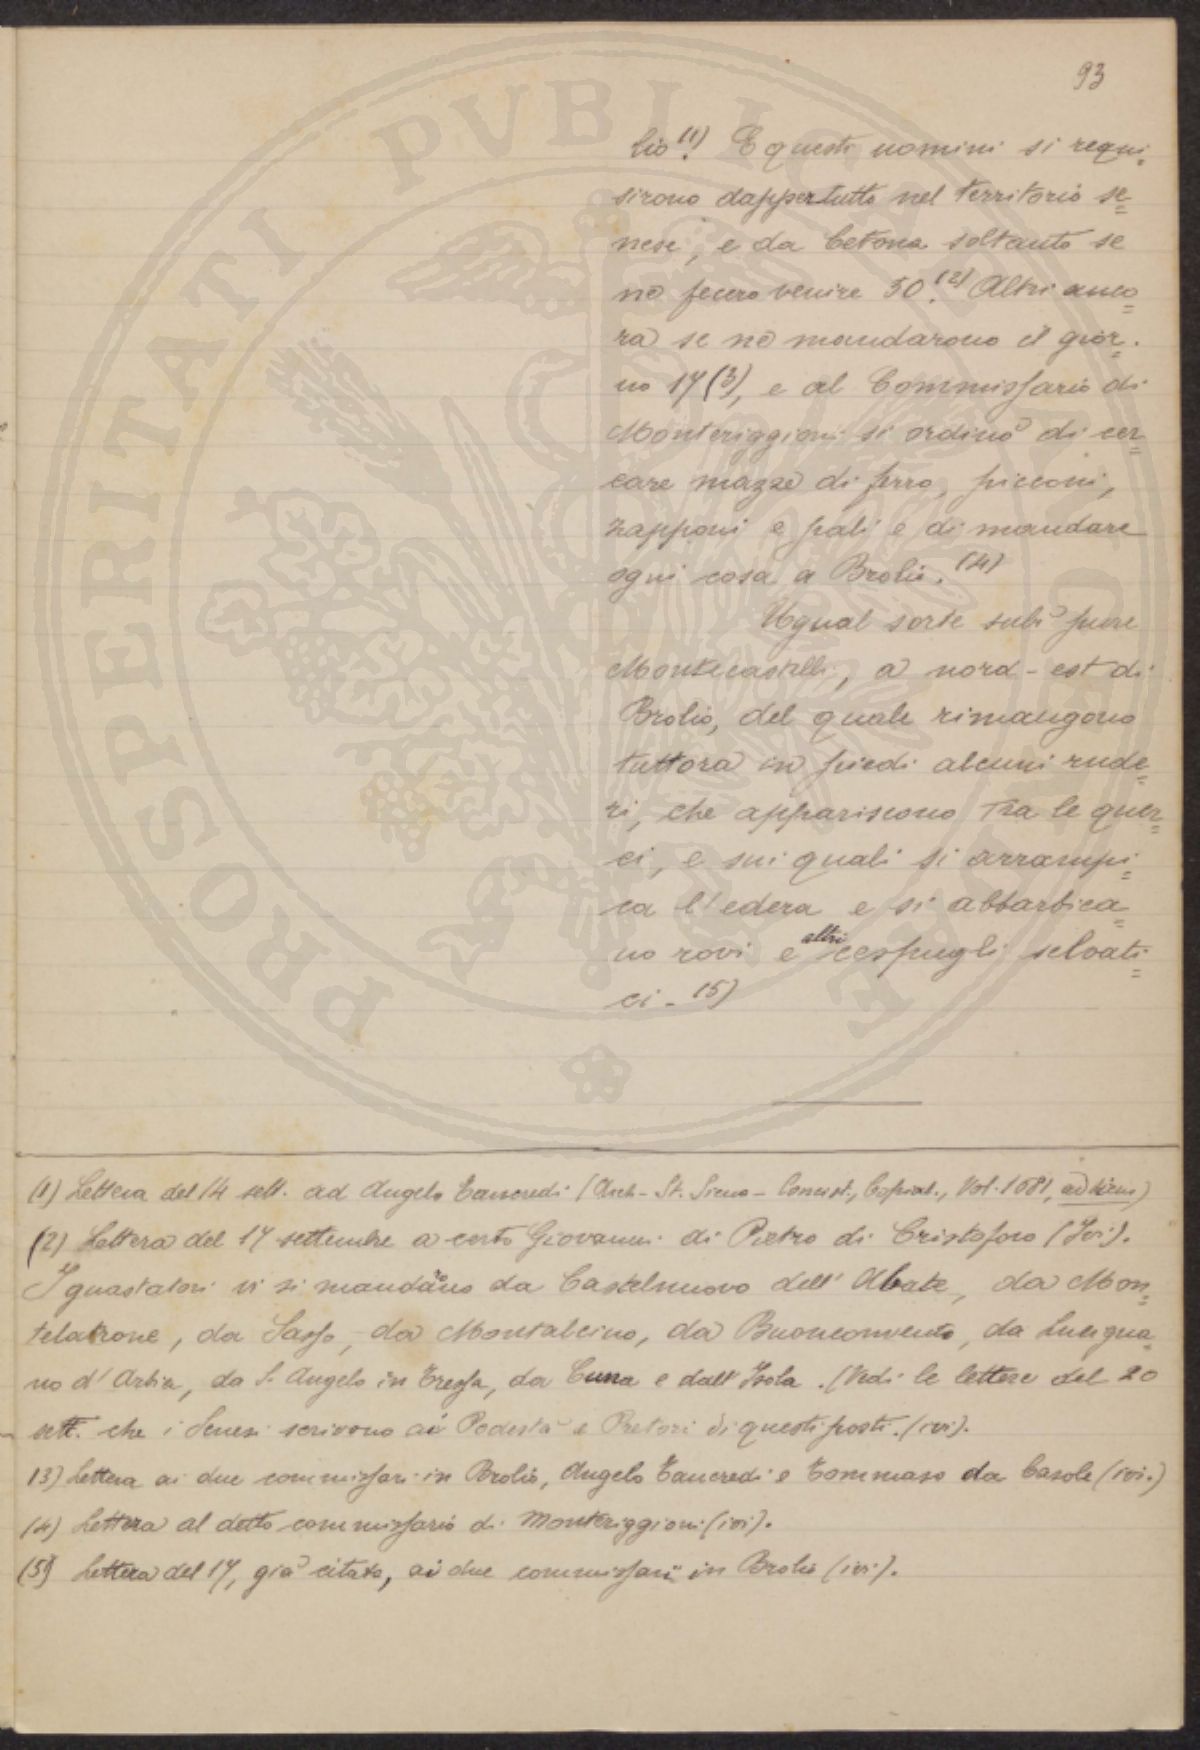 93
lio.(1) E questi uomini si requi=
sirono dappertutto nel territorio se=
nese, e da Cetona soltanto se
ne fecero venire 50.(2) Altri anco=
ra se ne mandarono il gior=
no 17(3), e al Commissario di
Monteriggioni si ordinò di cer=
care mazze di ferro, picconi,
zapponi e pali e di mandare
ogni cosa a Brolio.(4)
Ugual sorte subì pure
Montecastelli, a nord-est di
Brolio, del quale rimangono
tuttora in piedi alcuni rude=
ri, che appariscono tra le quer=
ci, e sui quali si arrampi=
ca l'edera e si abbarbica=
no rovi e altri cespugli selvati=
ci.(5)
(1) Lettera del 14 sett. ad Angelo Tancredi (Arch. St. Siena - Concist., Copial., Vol. 1681, ad diem)
(2) Lettera del 17 settembre a certo Giovanni di Pietro di Cristoforo (Ivi).
I guastatori vi si mandarono da Castelnuovo dell'Abate, da Mon=
telatrone, da Sasso, da Montalcino, da Buonconvento, da Lucigna=
no d'Arbia, da S. Angelo in Tressa, da Cuna e dall'Isola. (Vedi le lettere del 20
sett. che i Senesi scrivono ai Podestà e Pretori di questi posti. (ivi).
(3) Lettera ai due commissari in Brolio, Angelo Tancredi e Tommaso da Casole (ivi.)
(4) Lettera al detto commissario di Monteriggioni (ivi).
(5) Lettera del 17, già citata, ai due commissari in Brolio (ivi).
PROSPERITATI PVBLICAE